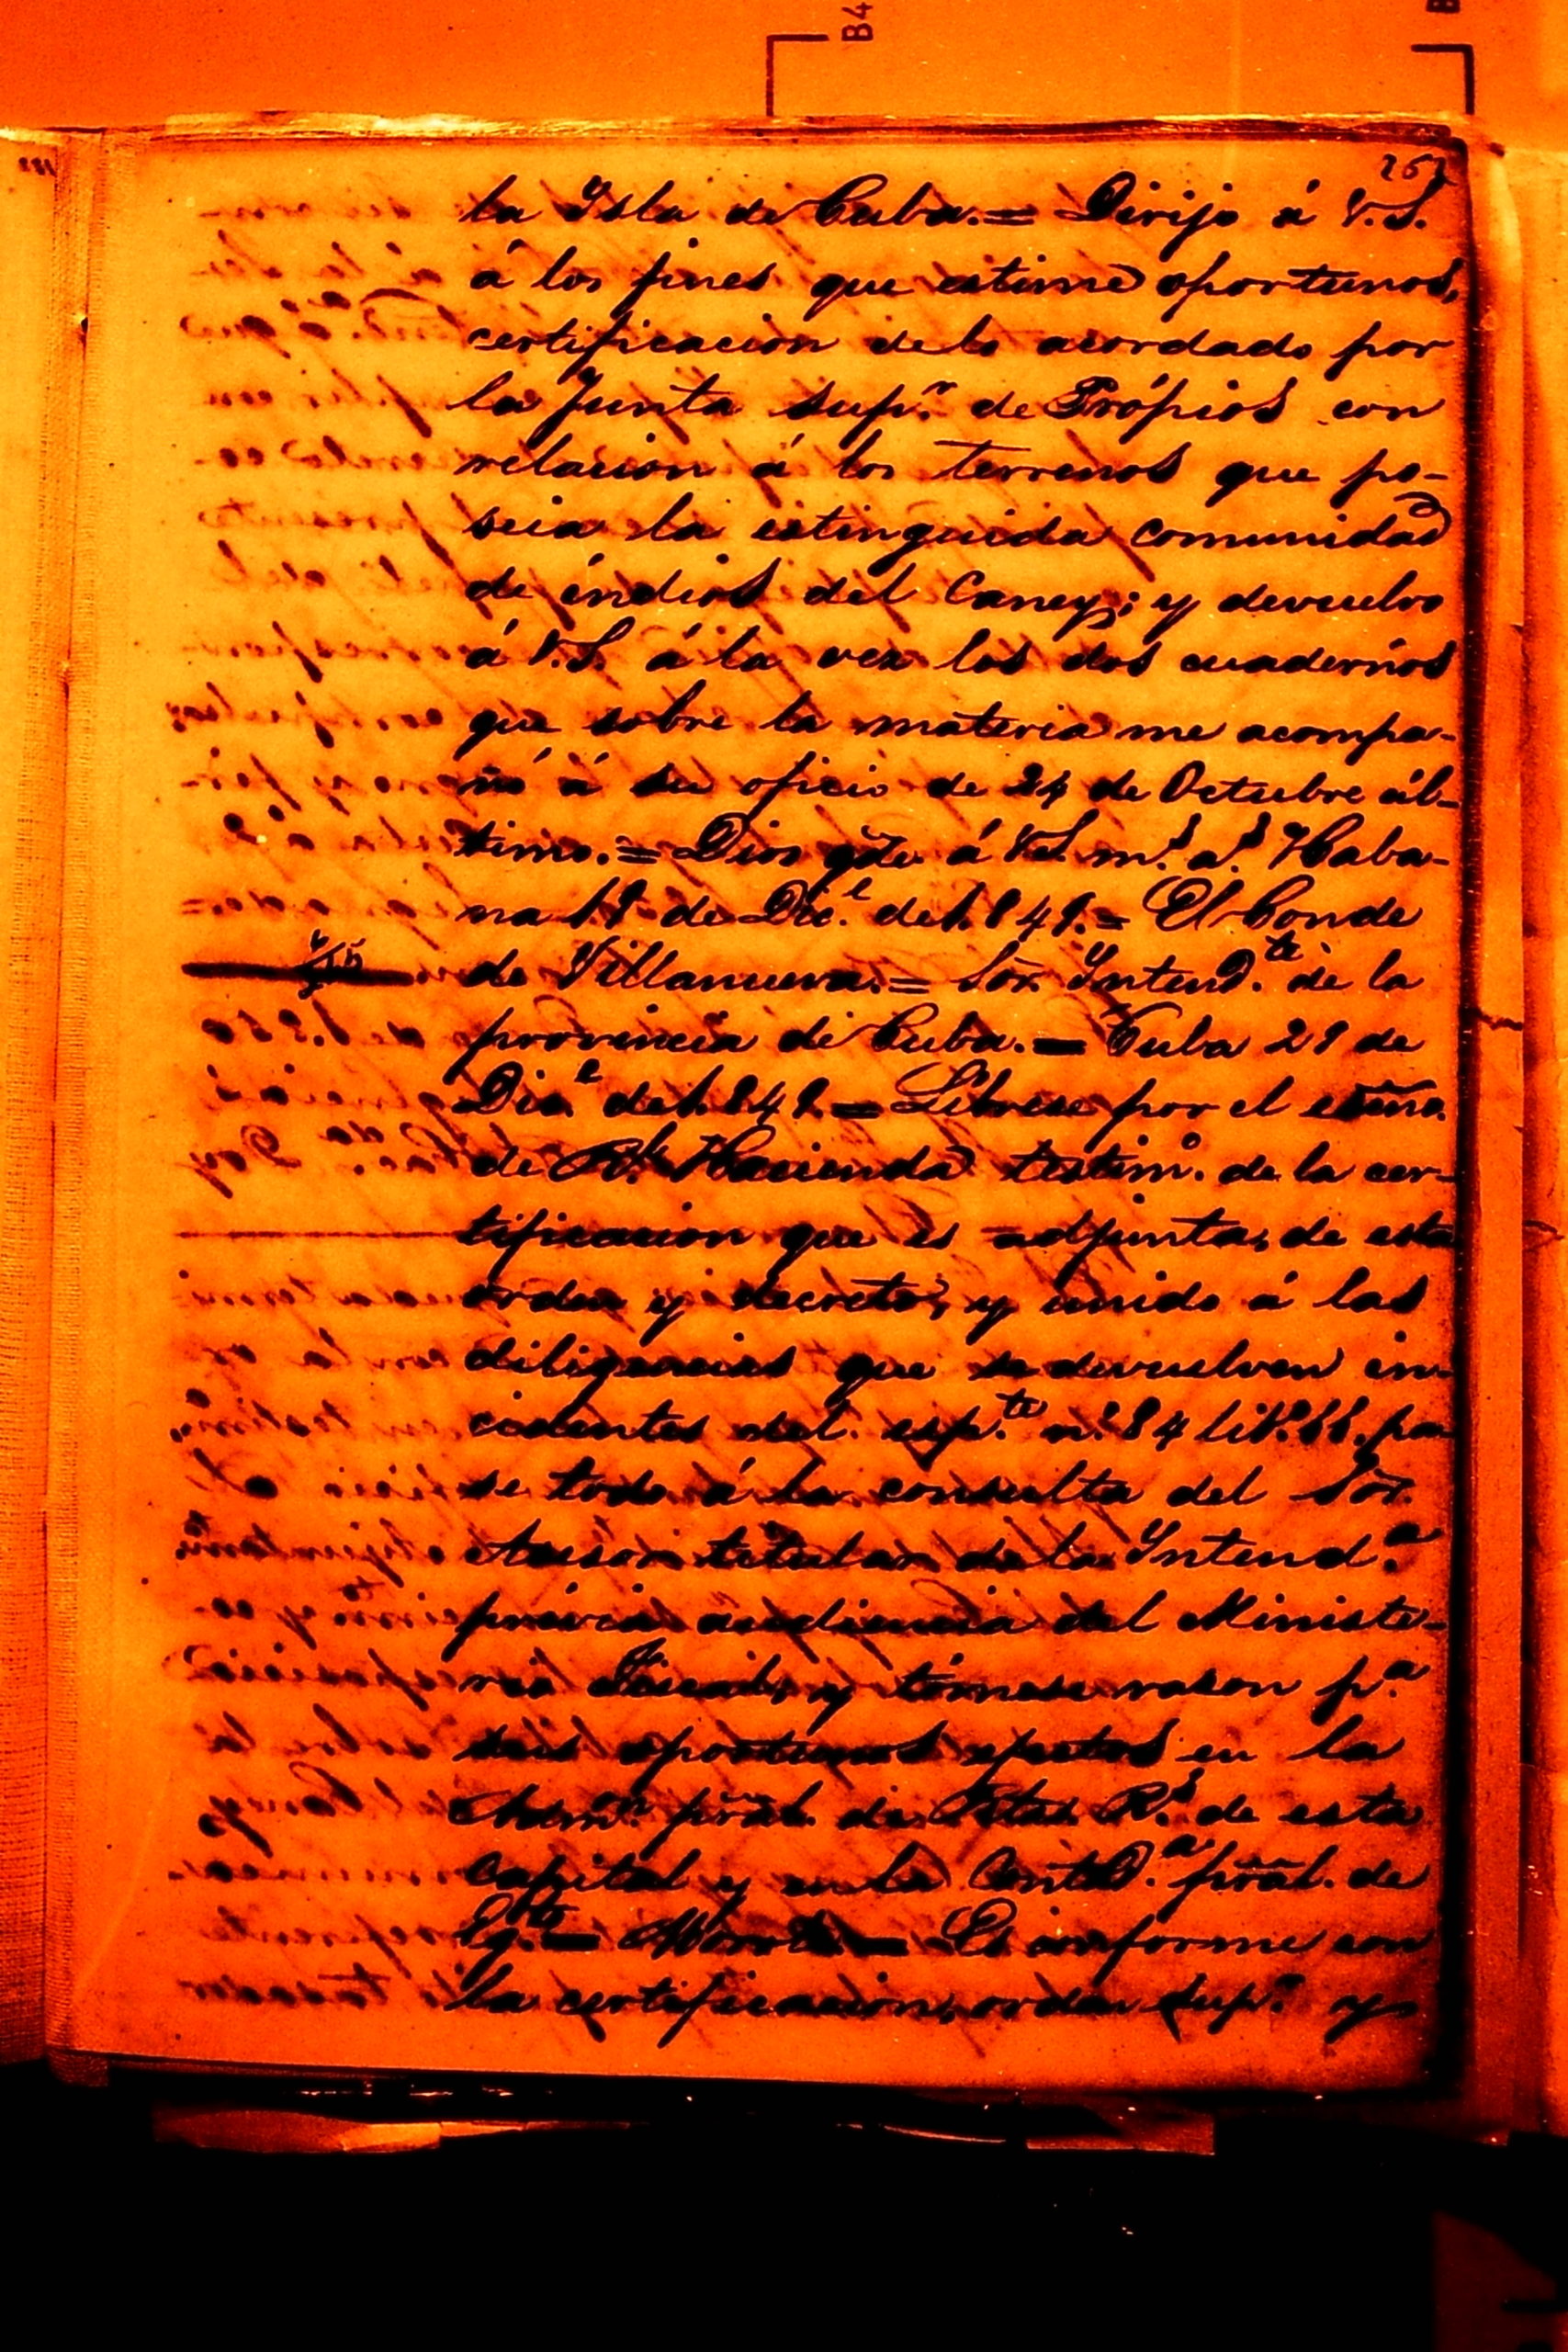 B4
la Ysla de Cuba.= Dirijo á V.S.
á los fines que estime oportunos,
certificacion delo acordado por
la Junta sup.r de Própios con
relacion á los terrenos que po-
seia la estinguida comunidad
de índios del Caney; y devuelvo
á V.S. á la vez los dos cuadernos
que sobre la materia me acompa-
ñó á su oficio de 24 de Octubre úl-
timo.= Dios gde á V.S. m.s a.s Haba-
na 19 de Dic.e de 1.849.= El Conde
de Villanueva.= Sor. Yntend.te de la
provincia de Cuba.= Cuba 29 de
Dic.e de 1.849.= Líbrese por el esno.
de Rl. Hacienda testim.o de la cer-
tificacion que es adjunta, de esta
orden y decreto, y unido á las
diligencias que se devuelven in-
cidentes del esp.te n.o 84 pa-
se todo á la consulta del Sor.
Asesor titular de la Yntend.a
prévia audiencia del Ministe-
rio Fiscal, y tómese rason p.a
sus oportunos efectos en la
Adm.n pral. de Rtas. R.s de esta
capital y en la Contad.a pral. de
Ej.to = = Es conforme con
la certificacion, orden sup.r y